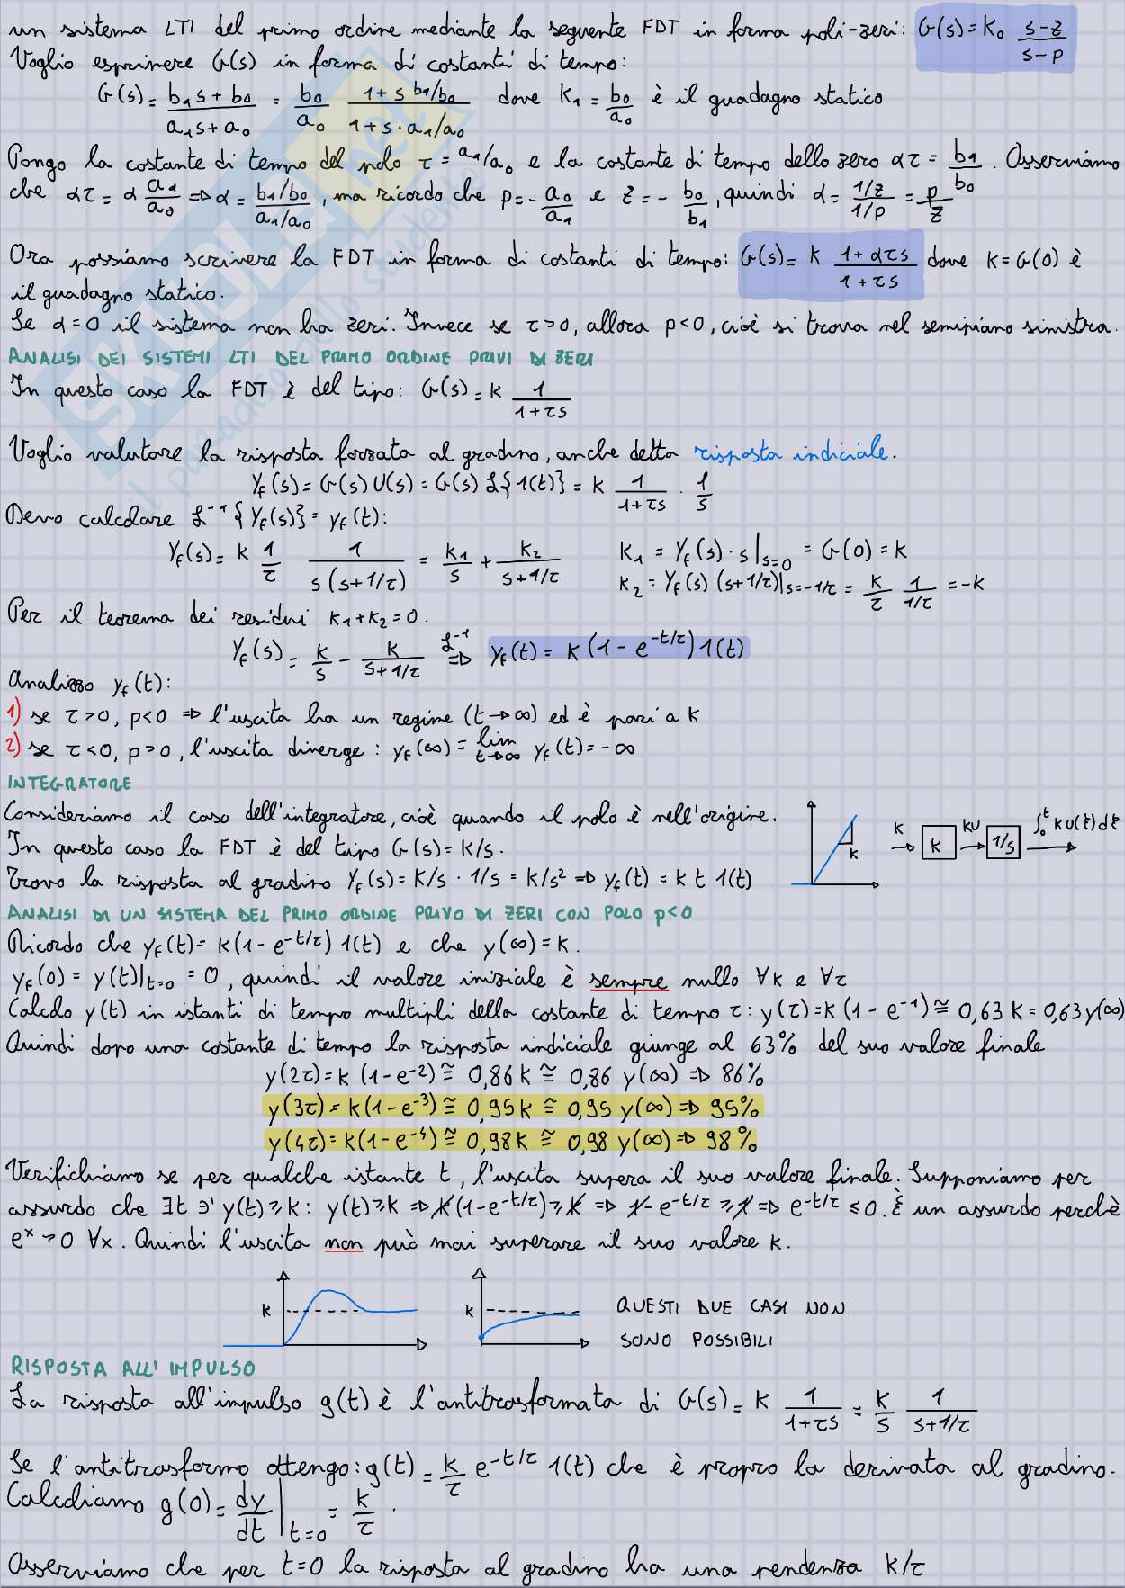 un sistema LTI del primo ordine mediante la seguente FDT in forma poli-zeri: G(s)=K₀ (s-z)/(s-p)
Voglio esprimere G(s) in forma di costanti di tempo:
G(s)= (b₁s+b₀)/(a₁s+a₀) = b₀/a₀ (1+s b₁/b₀)/(1+s·a₁/a₀) dove K₁=b₀/a₀ è il guadagno statico
Pongo la costante di tempo del polo τ=a₁/a₀ e la costante di tempo dello zero ατ=b₁/b₀. Osserviamo
che ατ=α a₁/a₀ ⇒ α=(b₁/b₀)/(a₁/a₀), ma ricordo che p=-a₀/a₁ e z=-b₀/b₁, quindi α=(1/z)/(1/p)=p/z
Ora possiamo scrivere la FDT in forma di costanti di tempo: G(s)= K (1+ατs)/(1+τs) dove K=G(0) è
il guadagno statico.
Se α=0 il sistema non ha zeri. Invece se τ>0, allora p<0, cioè si trova nel semipiano sinistra.
ANALISI DEI SISTEMI LTI DEL PRIMO ORDINE PRIVI DI ZERI
In questo caso la FDT è del tipo: G(s)=K 1/(1+τs)
Voglio valutare la risposta forzata al gradino, anche detta risposta indiciale.
Yf(s)=G(s)U(s)=G(s) ℒ{1(t)}=K 1/(1+τs) · 1/s
Devo calcolare ℒ⁻¹{Yf(s)}=yf(t):
Yf(s)=K 1/τ 1/(s(s+1/τ)) = K₁/s + K₂/(s+1/τ) K₁ = Yf(s)·s|s=0 = G(0)=K
K₂=Yf(s)(s+1/τ)|s=-1/τ = K/τ 1/(1/τ) = -K
Per il teorema dei residui K₁+K₂=0.
Yf(s)= K/s - K/(s+1/τ) ℒ⁻¹⇒ yf(t)= K(1-e^(-t/τ))1(t)
Analizzo yf(t):
1) se τ>0, p<0 ⇒ l'uscita ha un regime (t→∞) ed è pari a K
2) se τ<0, p>0, l'uscita diverge: yf(∞)=lim t→∞ yf(t)=-∞
INTEGRATORE
Consideriamo il caso dell'integratore, cioè quando il polo è nell'origine.
In questo caso la FDT è del tipo G(s)=K/s.
Trovo la risposta al gradino Yf(s)=K/s · 1/s = K/s² ⇒ yf(t)=K t 1(t)
K
K K KU 1/s ∫₀ᵗ KU(t)dt
ANALISI DI UN SISTEMA DEL PRIMO ORDINE PRIVO DI ZERI CON POLO p<0
Ricordo che yf(t)=K(1-e^(-t/τ))1(t) e che y(∞)=K.
yf(0)=y(t)|t=0=0, quindi il valore iniziale è sempre nullo ∀K e ∀τ
Calcolo y(t) in istanti di tempo multipli della costante di tempo τ: y(τ)=K(1-e⁻¹)≅0,63K=0,63y(∞)
Quindi dopo una costante di tempo la risposta indiciale giunge al 63% del suo valore finale
y(2τ)=K(1-e⁻²)≅0,86K≅0,86 y(∞)⇒86%
y(3τ)=K(1-e⁻³)≅0,95K≅0,95 y(∞)⇒95%
y(4τ)=K(1-e⁻⁴)≅0,98K≅0,98 y(∞)⇒98%
Verifichiamo se per qualche istante t, l'uscita supera il suo valore finale. Supponiamo per
assurdo che ∃t ∋' y(t)≥K: y(t)≥K ⇒ K(1-e^(-t/τ))≥K ⇒ 1-e^(-t/τ)≥1 ⇒ e^(-t/τ)≤0. È un assurdo perchè
eˣ>0 ∀x. Quindi l'uscita non può mai superare il suo valore K.
K K QUESTI DUE CASI NON
SONO POSSIBILI
RISPOSTA ALL'IMPULSO
La risposta all'impulso g(t) è l'antitrasformata di G(s)=K 1/(1+τs)=K/s 1/(s+1/τ)
Se l'antitrasformo ottengo: g(t)=K/τ e^(-t/τ) 1(t) che è proprio la derivata al gradino.
Calcoliamo g(0)=dy/dt|t=0=K/τ.
Osserviamo che per t=0 la risposta al gradino ha una pendenza K/τ